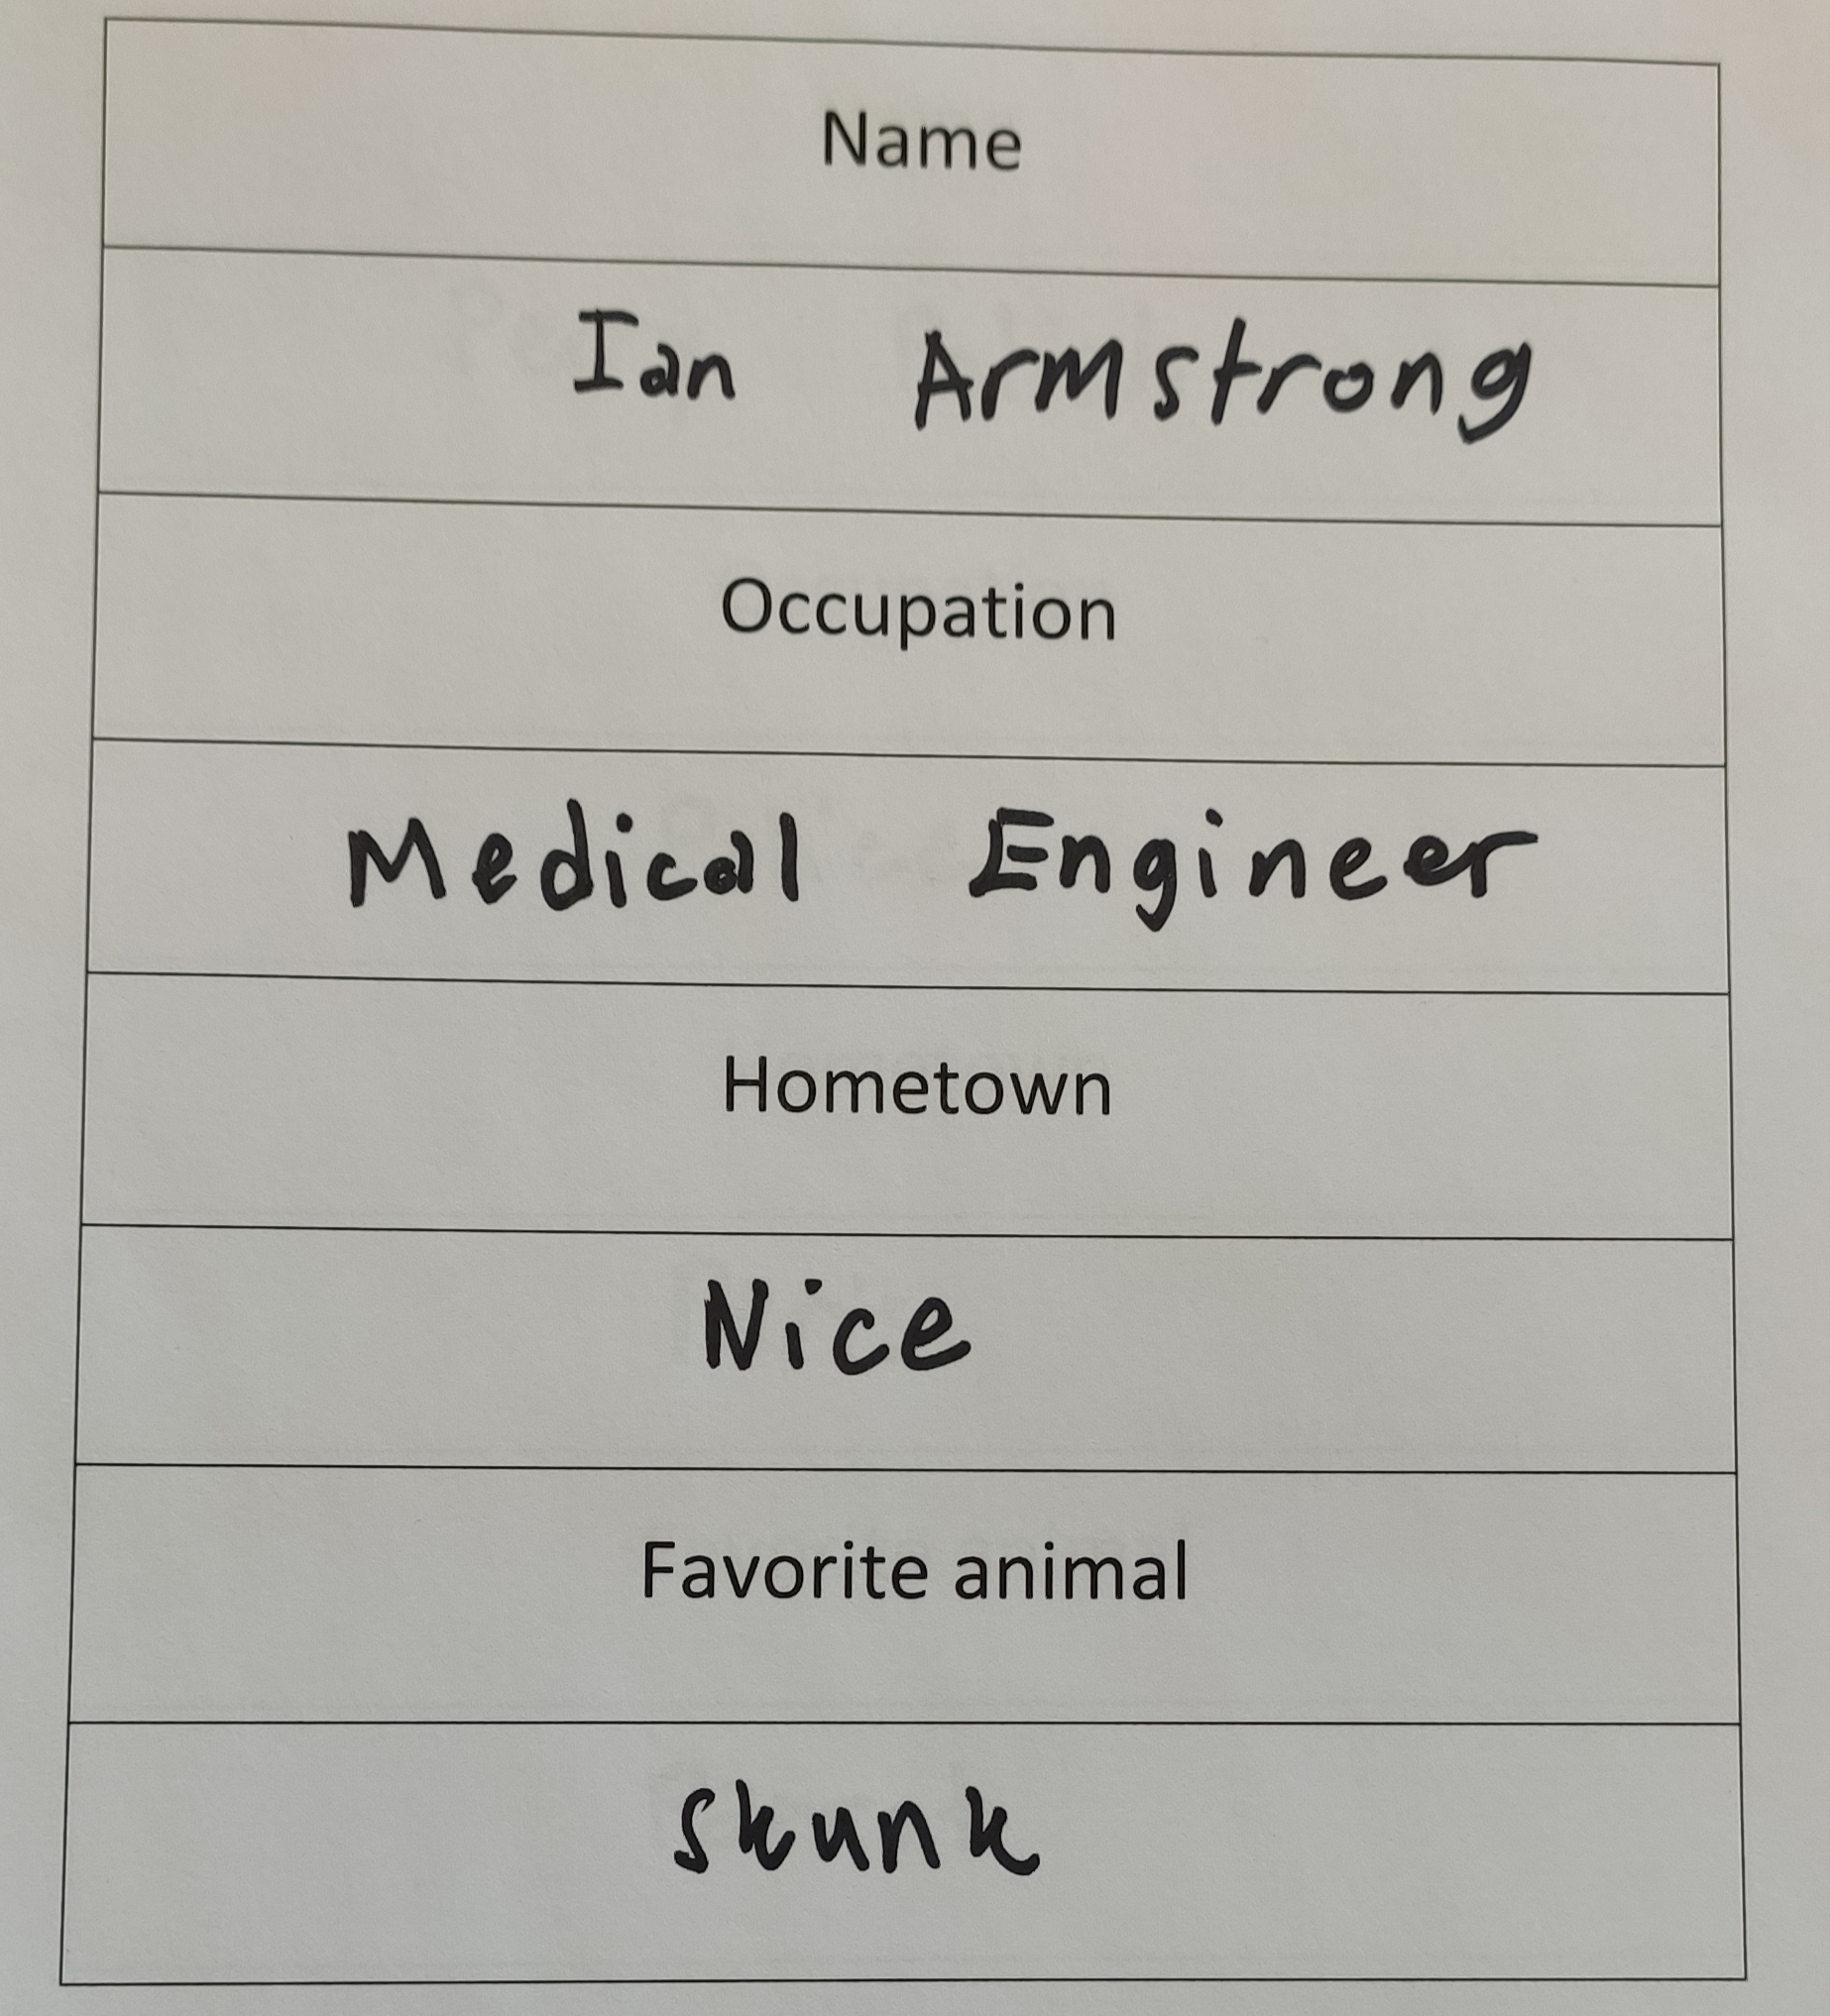 Name
Ian Armstrong
Occupation
Medical Engineer
Hometown
Nice
Favorite animal
skunk